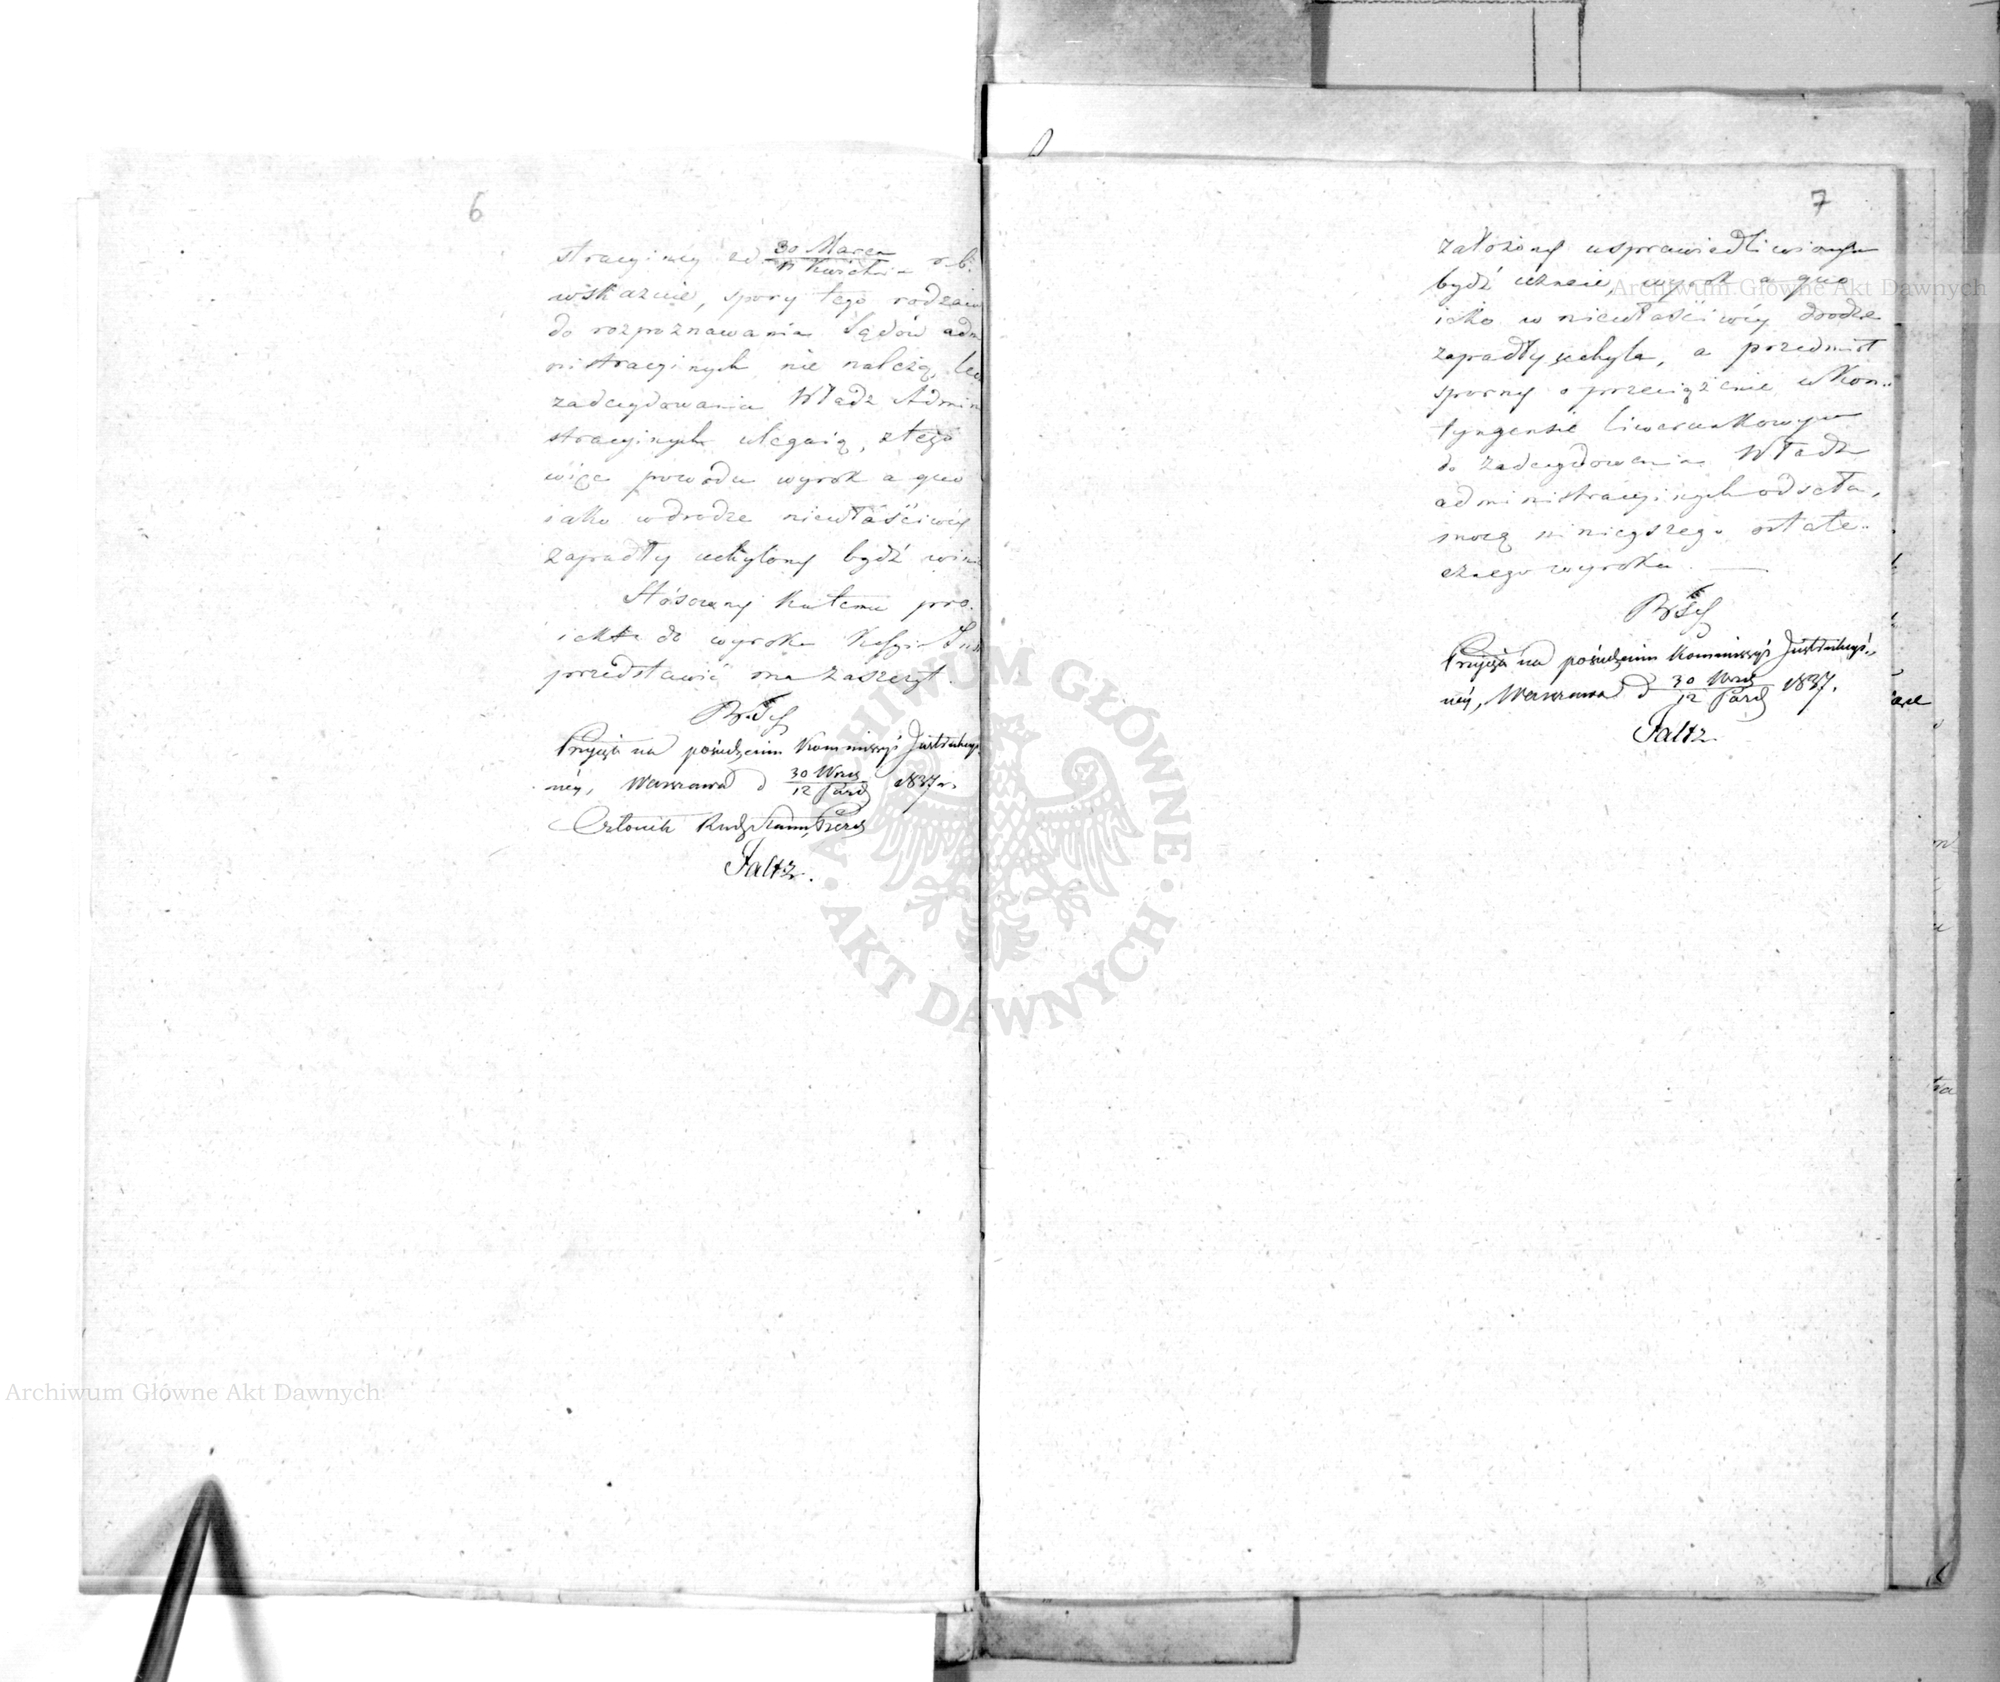 6
stracyiney z d. 30 Marca / 11 Kwietnia r. b.
wskazuie, spory tego rodzaiu
do rozpoznawania Sądów adm
nistracyinych nie należą, lec
zadecydowania Władz Admin
stracyinych ulegaią, z tego
więc powodu wyrok a quo
iako w drodze niewłaściwéy
zapradły uchylony bydź wini
Stósowny ku temu pro-
iekt do wyroku
przedstawić ma zaszczyt.
Przyjęto na posiedzeniu Kommissyi Instrukcyi
néy, Warszawa d 30 Wrześ / 12 Paźd 1837 r.
Członek Rady Stanu
Faltz.
7
założony usprawiedliwionym
bydź uznaie, wyrok a quo
iako w niewłaściwéy drodze
zapradły uchyla, a przedmiot
sporny o przeciążenie w Kon-
tyngensie liwerunkowym
do zadecydowania Władz
administracyinych odseła,
mocą ninieyszego ostate-
cznego wyroku. —
Przyjęto na posiedzeniu Kommissyi Instrukcyi-
néy, Warszawa d 30 Wrześ / 12 Paźd 1837.
Faltz
Archiwum Główne Akt Dawnych
Archiwum Główne Akt Dawnych
ARCHIWUM GŁÓWNE · AKT DAWNYCH ·